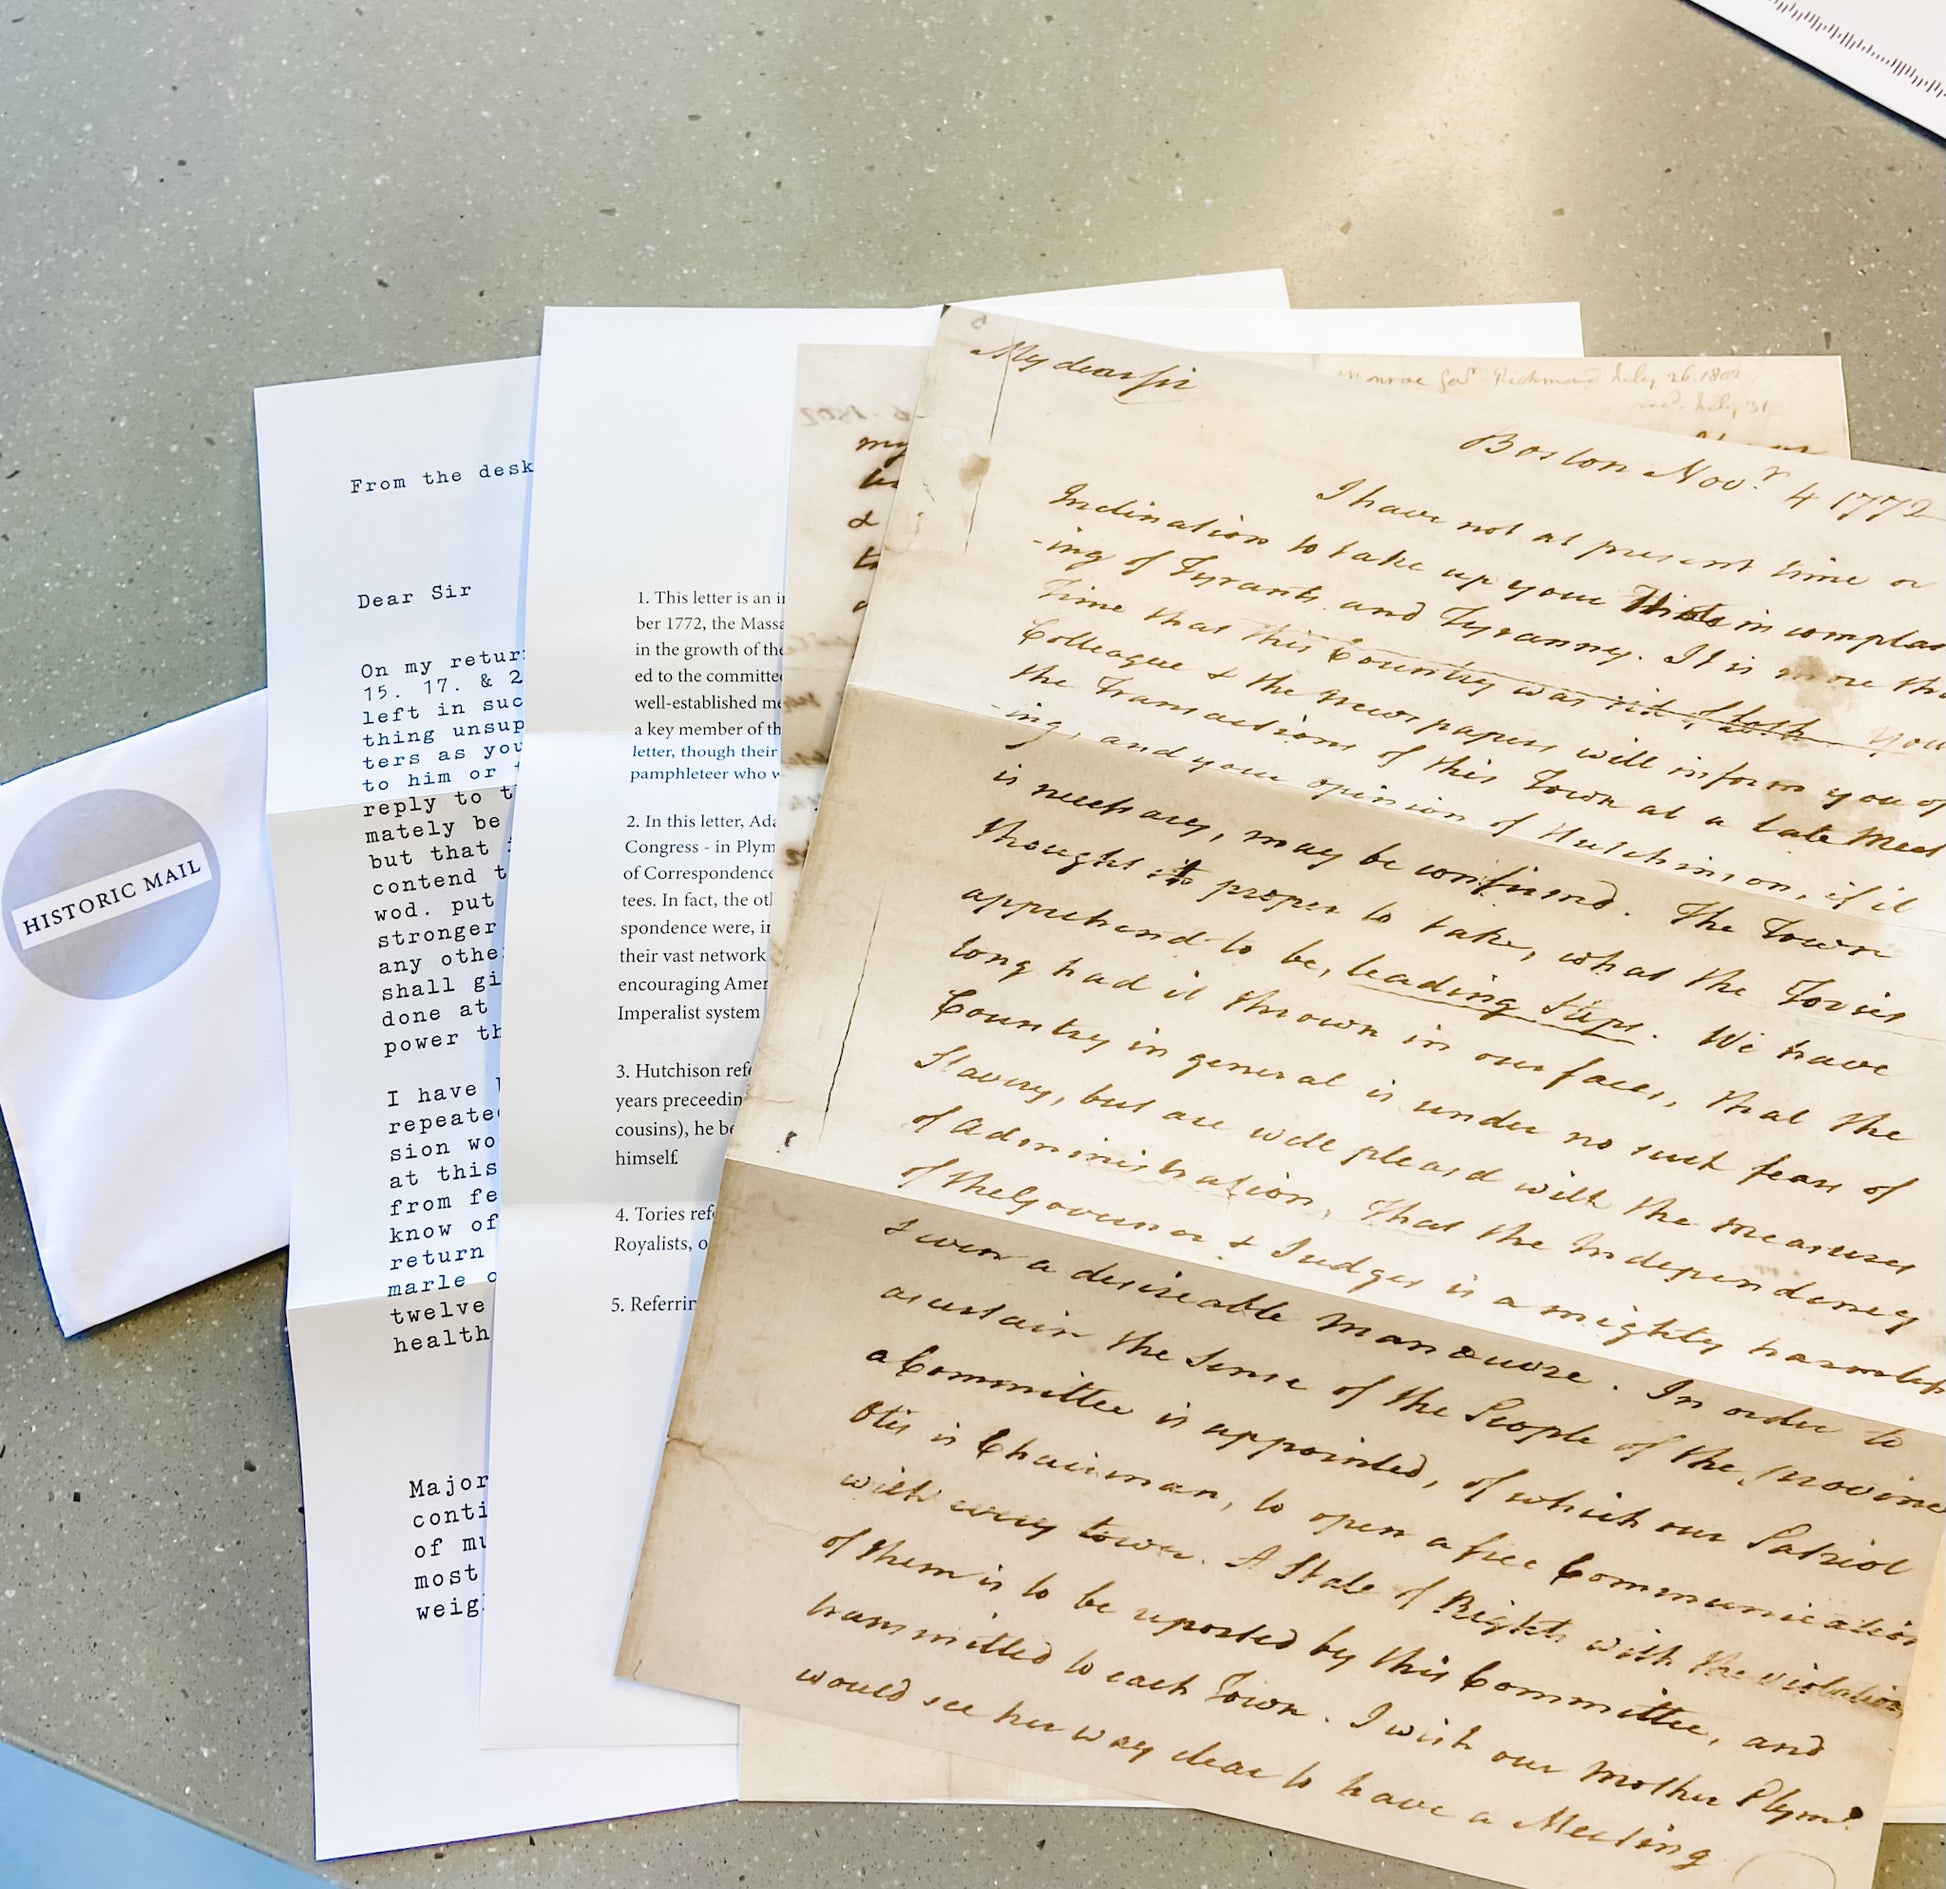 HISTORIC MAIL
From the desk
Dear Sir
On my retur
15. 17. & 2
left in suc
thing unsup
ters as you
to him or t
reply to t
mately be
but that
contend t
wod. put
stronger
any othe
shall gi
done at
power th
I have
repeate
sion wo
at this
from fe
know of
return
marle o
twelve
health
Major
conti
of mu
most
weig
1. This letter is an i
ber 1772, the Massa
in the growth of the
ed to the committee
well-established me
a key member of th
letter, though their
pamphleteer who w
2. In this letter, Ada
Congress - in Plym
of Correspondence
tees. In fact, the oth
spondence were, in
their vast network
encouraging Amer
Imperalist system
3. Hutchison refe
years preceedin
cousins), he be
himself.
4. Tories refe
Royalists, o
5. Referrin
my
&
Monroe Gov.r Richmond July 26. 1802
recd. July 31
My dear Sir
Boston Nov.r 4 1772
I have not at present time or
Inclination to take up your Hint in complain
-ing of Tyrants and Tyranny. It is more tha
Time that this Country was rid of both. You
Colleague & the News papers will inform you of
the Transactions of this Town at a late Meet
-ing, and your opinion of Hutchinson, if it
is necessary, may be confirmed. The Town
thought it proper to take, what the Tories
apprehend to be, leading Steps. We have
long had it thrown in our faces, that the
Country in general is under no such fears of
Slavery, but are well pleasd with the Measures
of Administration, that the Independency
of the Governor & Judges is a mighty harmless
& even a desireable Manœuvre. In order to
ascertain the Sense of the People of the Province
a Committee is appointed, of which our Patriot
Otis is Chairman, to open a free Communication
with every town. A State of Rights with the violations
of them is to be reported by this Committee, and
transmitted to each Town. I wish our Mother Plym.o
would see her way clear to have a Meeting